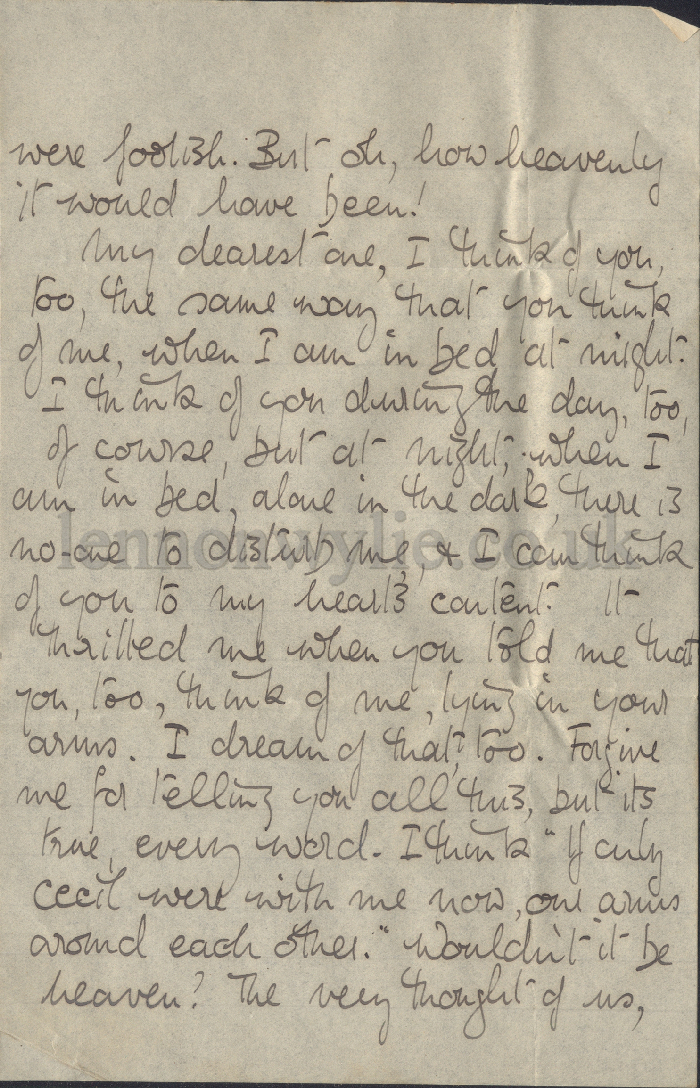 were foolish. But oh, how heavenly
it would have been!
My dearest one, I think of you,
too, the same way that you think
of me, when I am in bed at night.
I think of you during the day, too,
of course, but at night, when I
am in bed, alone in the dark, there is
no-one to disturb me, & I can think
lennonwylie.co.uk
of you to my heart's content. It
thrilled me when you told me that
you, too, think of me, lying in your
arms. I dream of that, too. Forgive
me for telling you all this, but its
true, every word. I think "If only
Cecil were with me now, our arms
around each other." Wouldn't it be
heaven? The very thought of us,